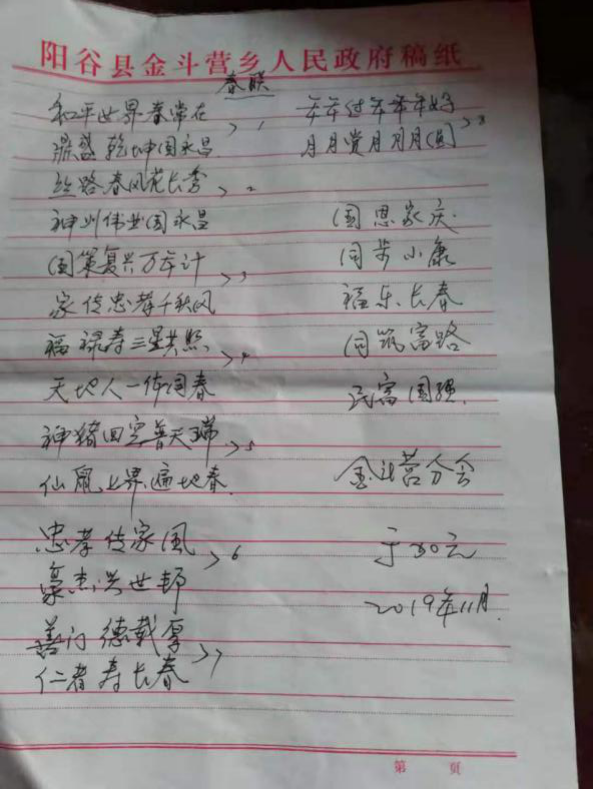 阳谷县金斗营乡人民政府稿纸
春联
和平世界春常在
鼎盛乾坤国永昌 > 1
丝路春风花长秀
神州伟业国永昌 > 2
国策复兴万年计
家传忠孝千秋风 > 3
福禄寿三星共照
天地人一体同春 > 4
神猪回宫普天瑞
仙鼠上界遍地春 > 5
忠孝传家风
豪杰兴世邦 > 6
善门德载厚
仁者寿长春 > 7
年年过年年年好
月月赏月月月圆 > 8
国恩家庆
同步小康
福乐长春
同筑富路
民富国强
金斗营分会
于
2019年11月
第 页